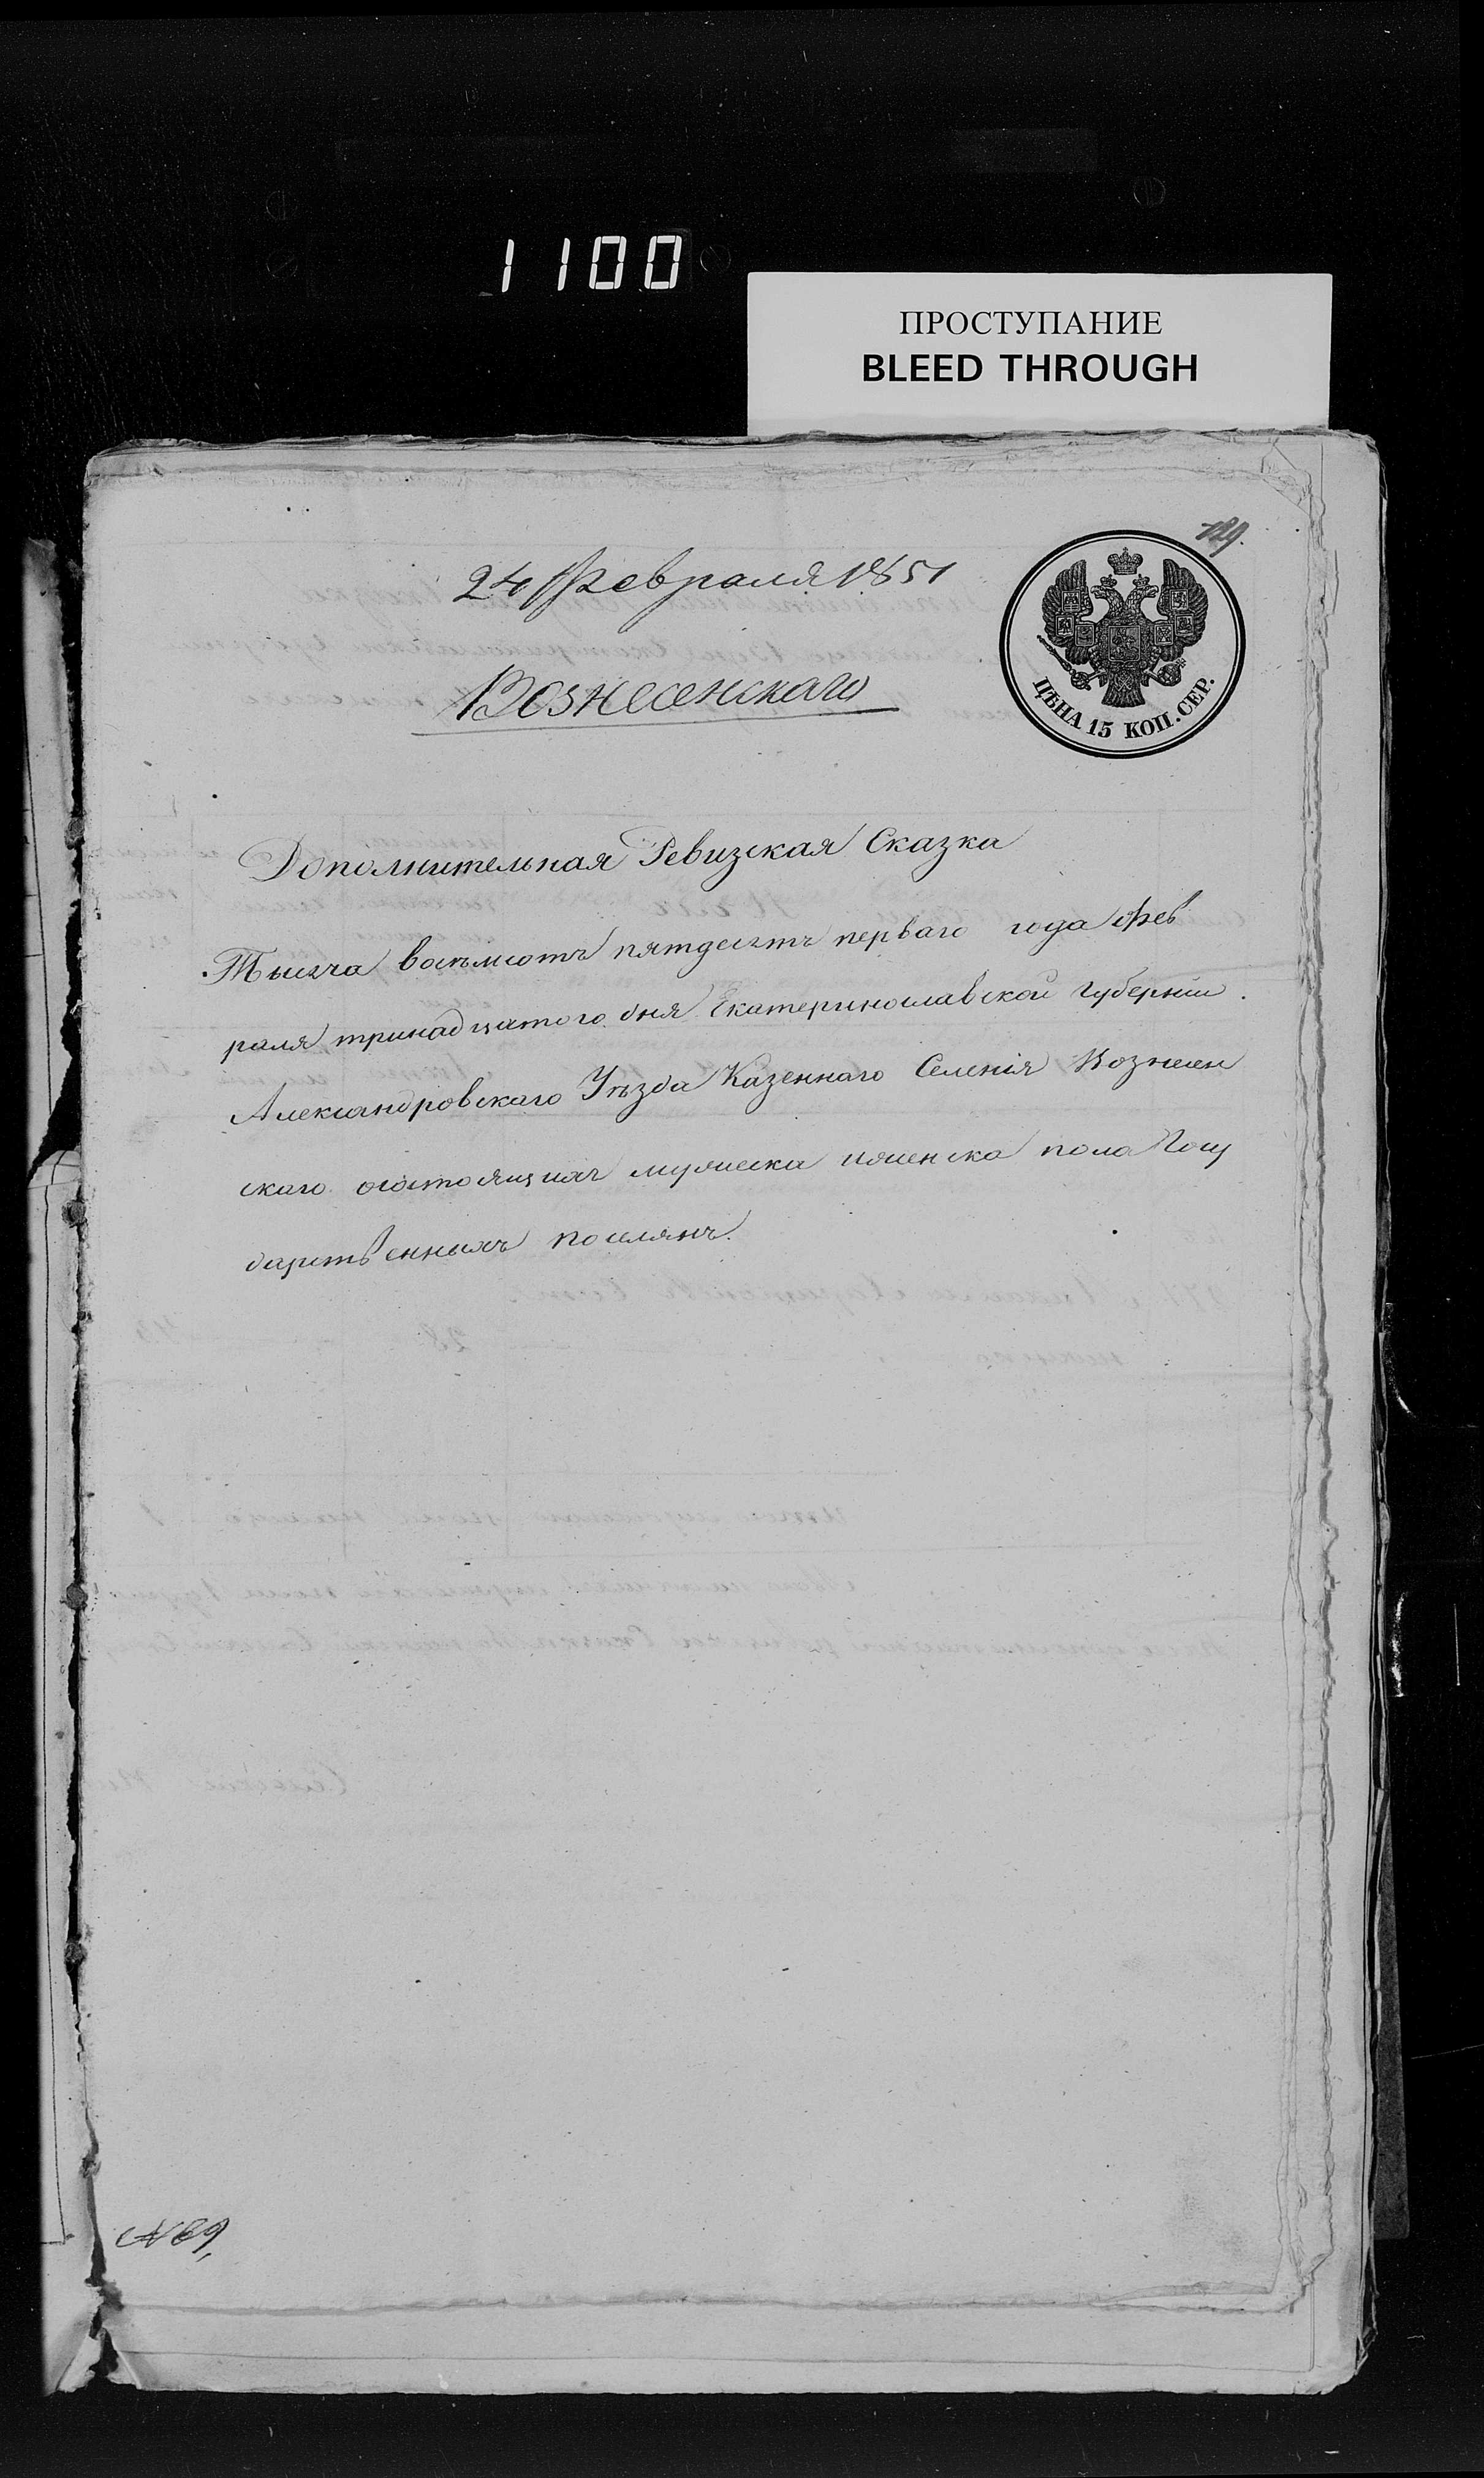 1100
ПРОСТУПАНИЕ
BLEED THROUGH
129.
24 Февраля 1851
Вознесенскаго
ЦѢНА 15 КОП. СЕР.
Дополнительная Ревизская Сказка
Тысяча восъмсотъ пятдесятъ перваго года Фев
раля тринадцатого дня Екатеринославской Губерніи
Александровскаго Уѣзда Казеннаго Селенія Вознесен
скаго осостоящихъ мужеска иженска пола Госу
дарственныхъ поселянъ.